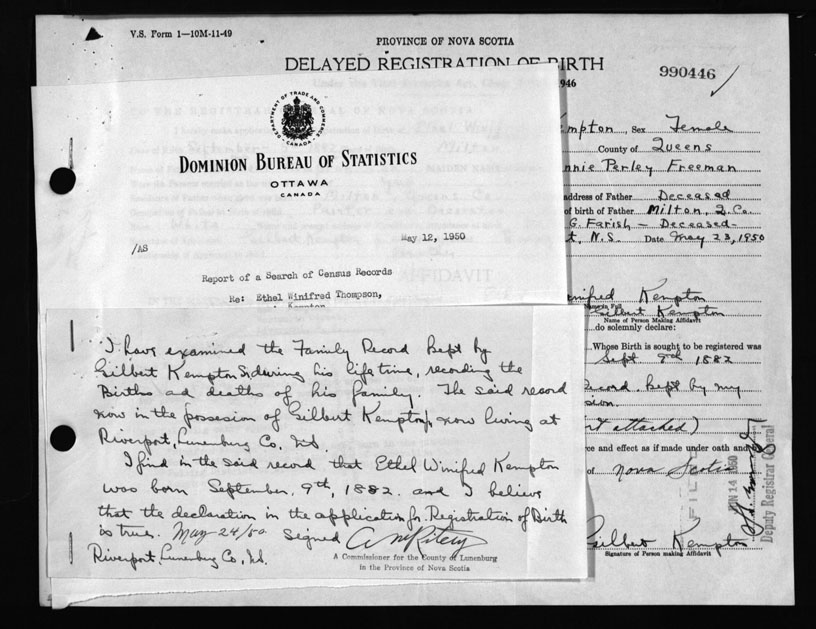 V.S. Form 1—10M-11-49
PROVINCE OF NOVA SCOTIA
DELAYED REGISTRATION OF BIRTH
990446
1946
DEPARTMENT OF TRADE AND COMMERCE
CANADA
DOMINION BUREAU OF STATISTICS
OTTAWA
CANADA
May 12, 1950
/AS
Report of a Search of Census Records
Re: Ethel Winifred Thompson,
Kempton
I have examined the Family Record kept by
Gilbert Kempton Sr during his life time, recording the
Births ad deaths of his family. The said record
now in the possesion of Gilbert Kempton, now living at
Riverport, Lunenburg Co. N.S.
I find in the said record that Ethel Winifred Kempton
was born September. 9th, 1882. and I believe
that the declaration in the application for Registration of Birth
is true. May 24/50 Signed
Riverport, Lunenburg Co, N.S.
A Commissioner for the County of Lunenburg
in the Province of Nova Scotia
Kempton, Sex Female
County of Queens
nnie Perley Freeman
address of Father Deceased
of birth of Father Milton, Q. Co.
G. Farish — Deceased—
t, N.S. Date May 23, 1950
inified Kempton
Gilbert Kempton
Name of Person Making Affidavit
do solemnly declare:
Whose Birth is sought to be registered was
Sept 9th 1882
ecord kept by my
sion.
rt attached)
ce and effect as if made under oath and
of Nova Scotia
FILED
JUN 14 1950
Deputy Registrar General
Gilbert Kempton
Signature of Person making Affidavit